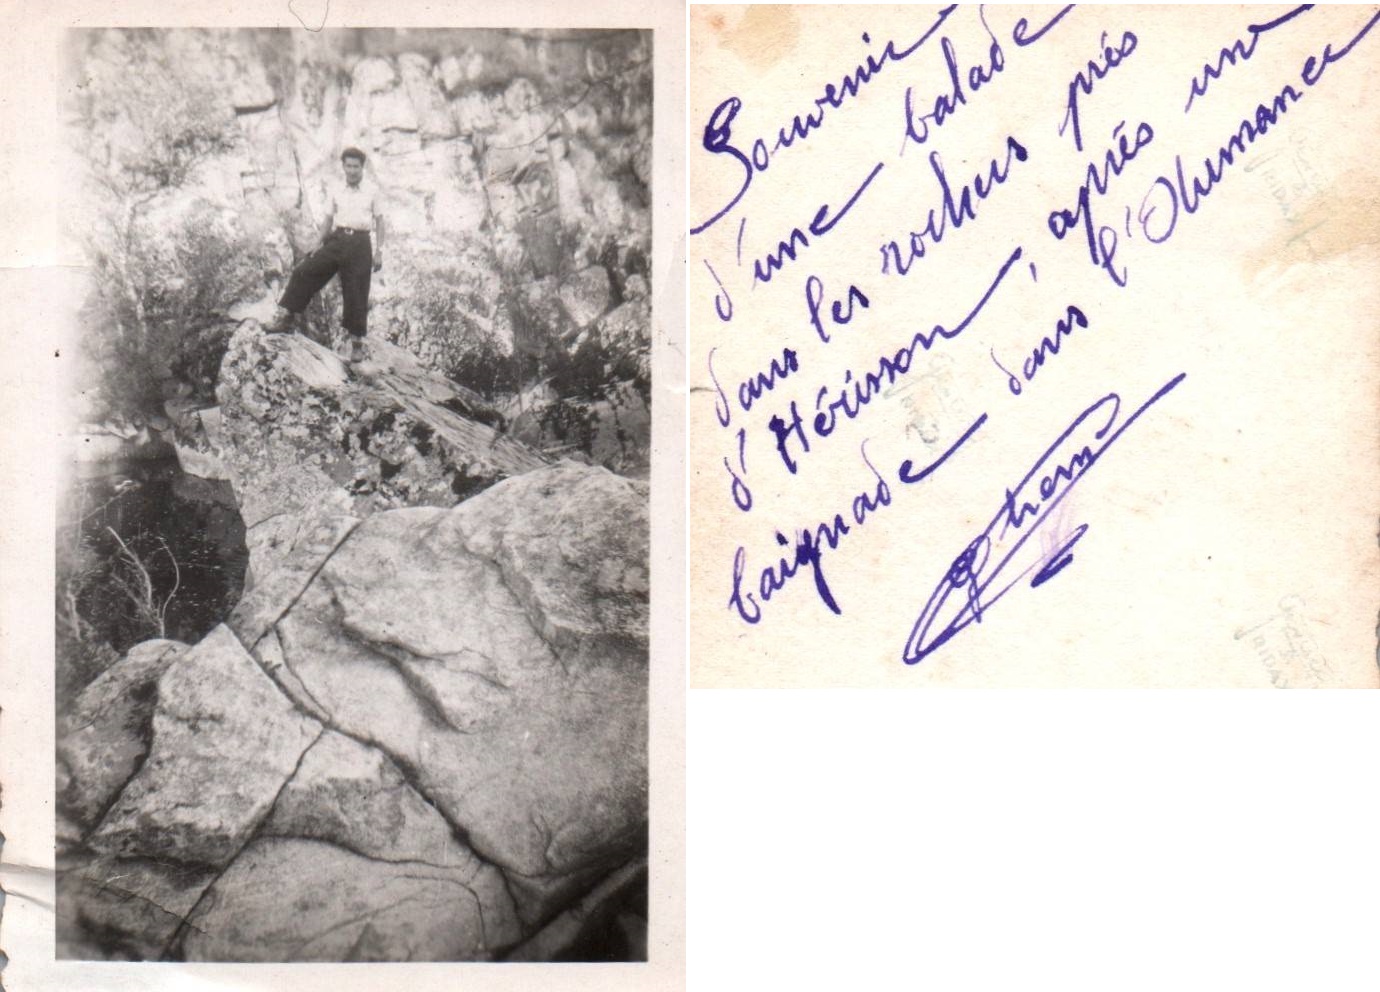 Souvenir
d'une balade
dans les rochers près
d'Hérisson, après une
baignade dans l'Oeumance